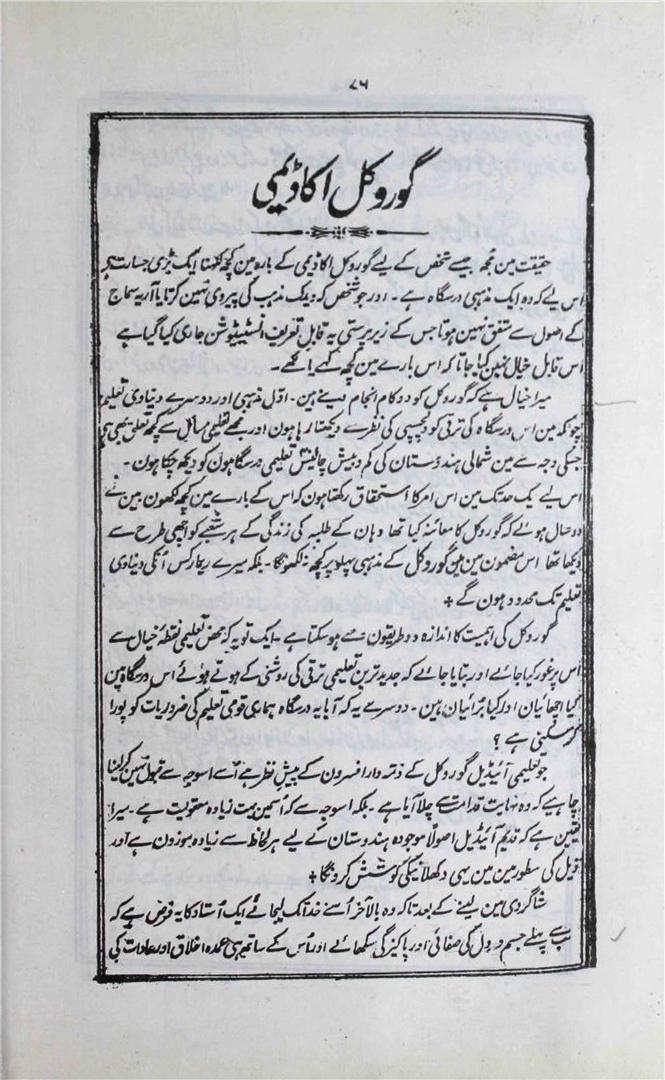 ۷۶
گوروکل اکاڈیمی
حقیقت مین مجھ جیسے شخص کے لیے گوروکل اکاڈیمی کے بارہ مین کچھ لکھنا ایک بڑی جسارت ہے
اس لیے کہ وہ ایک مذہبی درسگاہ ہے ۔ اور جو شخص کہ ویدک مذہب کی پیروی نہین کرتا یا آریہ سماج
کے اصول سے متفق نہین ہوتا جس کے زیر پرستی یہ قابل تعریف انسٹیٹیوشن جاری کیا گیا ہے
اس قابل خیال نہین کیا جاتا کہ اس بارے مین کچھ کہے یا لکھے ۔
میرا خیال ہے کہ گوروکل کو دو کام انجام دینے ہین ۔ اوّل مذہبی اور دوسرے دنیاوی تعلیم
چونکہ مین اس درسگاہ کی ترقی کو دلچسپی کی نظر سے دیکھتا رہا ہون اور مجھے تعلیمی مسائل سے کچھ تعلق بھی ہی
جسکی وجہ سے مین شمالی ہندوستان کی کم و بیش چالیس تعلیمی درسگاہون کو دیکھ چکا ہون ۔
اس لیے ایک حد تک مین اس امر کا استحقاق رکھتا ہون کہ اس کے بارے مین کچھ لکھون مین نے
دو سال ہوئے کہ گوروکل کا معائنہ کیا تھا وہان کے طلبہ کی زندگی کے ہر شعبے کو اچھی طرح سے
دیکھا تھا اس مضمون مین مین گوروکل کے مذہبی پہلو پر کچھ نہ لکھونگا ۔ بلکہ میرے ریمارکس اُنکی دنیاوی
تعلیم تک محدود ہون گے +
گوروکل کی اہمیت کا اندازہ دو طریقون سے ہو سکتا ہے ۔ ایک تو یہ کہ محض تعلیمی نقطۂ خیال سے
اس پر غور کیا جائے اور بتایا جائے کہ جدید ترین تعلیمی ترقی کی روشنی کے ہوتے ہوئے اس درسگاہ مین
کیا اچھائیان اور کیا بُرائیان ہین ۔ دوسرے یہ کہ آیا یہ درسگاہ ہماری قومی تعلیم کی ضروریات کو پورا
کر سکتی ہے ؟
جو تعلیمی آئیڈیل گوروکل کے ذمہ دار افسرون کے پیش نظر ہے اُسے اسوجہ سے قبول نہین کر لینا
چاہیے کہ وہ نہایت قدامت سے چلا آیا ہے ۔ بلکہ اسوجہ سے کہ اُسمین بہت زیادہ معقولیت ہے ۔ میرا
یقین ہے کہ قدیم آئیڈیل اصولاً موجودہ ہندوستان کے لیے ہر لحاظ سے زیادہ موزون ہے اور
ذیل کی سطور مین مین یہی دکھلانیکی کوشش کرونگا +
شاگردی مین لینے کے بعد تاکہ وہ بالآخر اُسے خدا تک لیجائے ایک اُستاد کا یہ فرض ہے کہ
سب سے پہلے جسم و دل کی صفائی اور پاکیزگی سکھائے اور اُس کے ساتھ ہی عمدہ اخلاق اور عادات کی